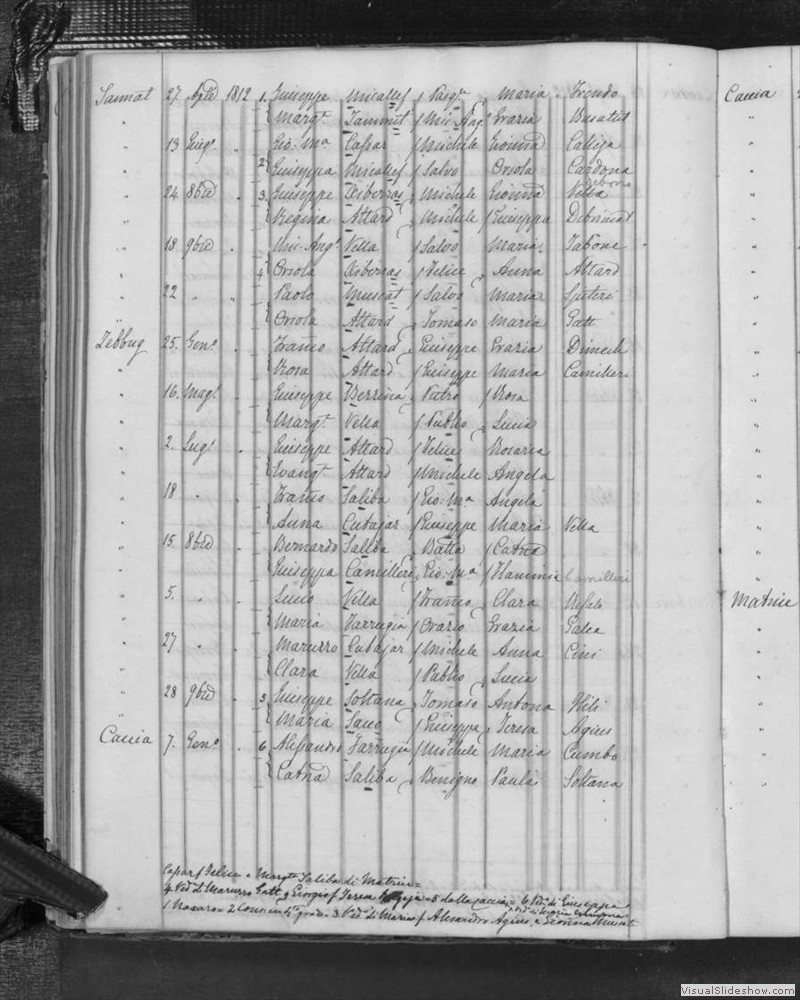 Sannat 27 Agto 1812 1. Giuseppe Micallef f Pasqe Maria Frendo Caccia
" Margta Tammut f Mic Ango Grazia Busuttil "
" 13 Lugo " Gio: Ma Capar f Michele Gionna Calleja "
" 2 Giuseppa Micallef f Salvo Orsola Cardona "
" 24 8bre " 3. Giuseppe Xiberras Michele Gionna Vella
" Regina Attard Michele f Giuseppa Debrincat "
" 18 9bre " Mic: Ango Vella f Salvo Maria Tabone "
" 4 Orsola Xiberras f Felice Anna Attard "
" 22 " " Paolo Muscat f Salvo Maria Spiteri "
" Orsola Attard Tomaso Maria Gatt "
Zebbug 25. Geno " Franco Attard Giuseppe Grazia Dimech "
" Rosa Attard f Giuseppe Maria Camilleri "
" 16. Mago " Giuseppe Pietro f Rosa "
" Margta Vella f Publio Lucia "
" 2. Lugo " Giuseppe Attard f Felice Rosaria "
" Evangta Attard f Michele Angela "
" 18 " Franco Saliba f Gio: Ma Angela "
" Anna Cutajar f Giuseppe Maria Vella "
" 15 8bre Bernardo Saliba Batta f Catna "
" Giuseppa Camilleri Gio: Ma f Flaminia Camilleri "
" 5. " Lucio Vella f Franco Clara Refalo Matrice
" Maria Farrugia f Orazio Grazia Galea "
" 27 " Maruzzo Cutajar f Michele Anna Cini "
" Clara Vella f Publio Lucia "
" 28 9bre " 5 Giuseppe Soltana Tomaso Antona Hili "
" Maria f Giuseppe Teresa Agius "
Caccia 7. Geno " 6 Alessandro Farrugia f Michele Maria Cumbo "
" Catna Saliba Benigno Paula Soltana "
Capar f Felice e Margta Saliba di Matrice =
4 Ved di Maruzzo Gatt Giorgio f Teresa = 5 dalla Caccia = 6 Vedo di Giuseppa
1 Naxaro = 2 Consento grado = 3 Vedo di Maria f Alesandro Agius e Gionna